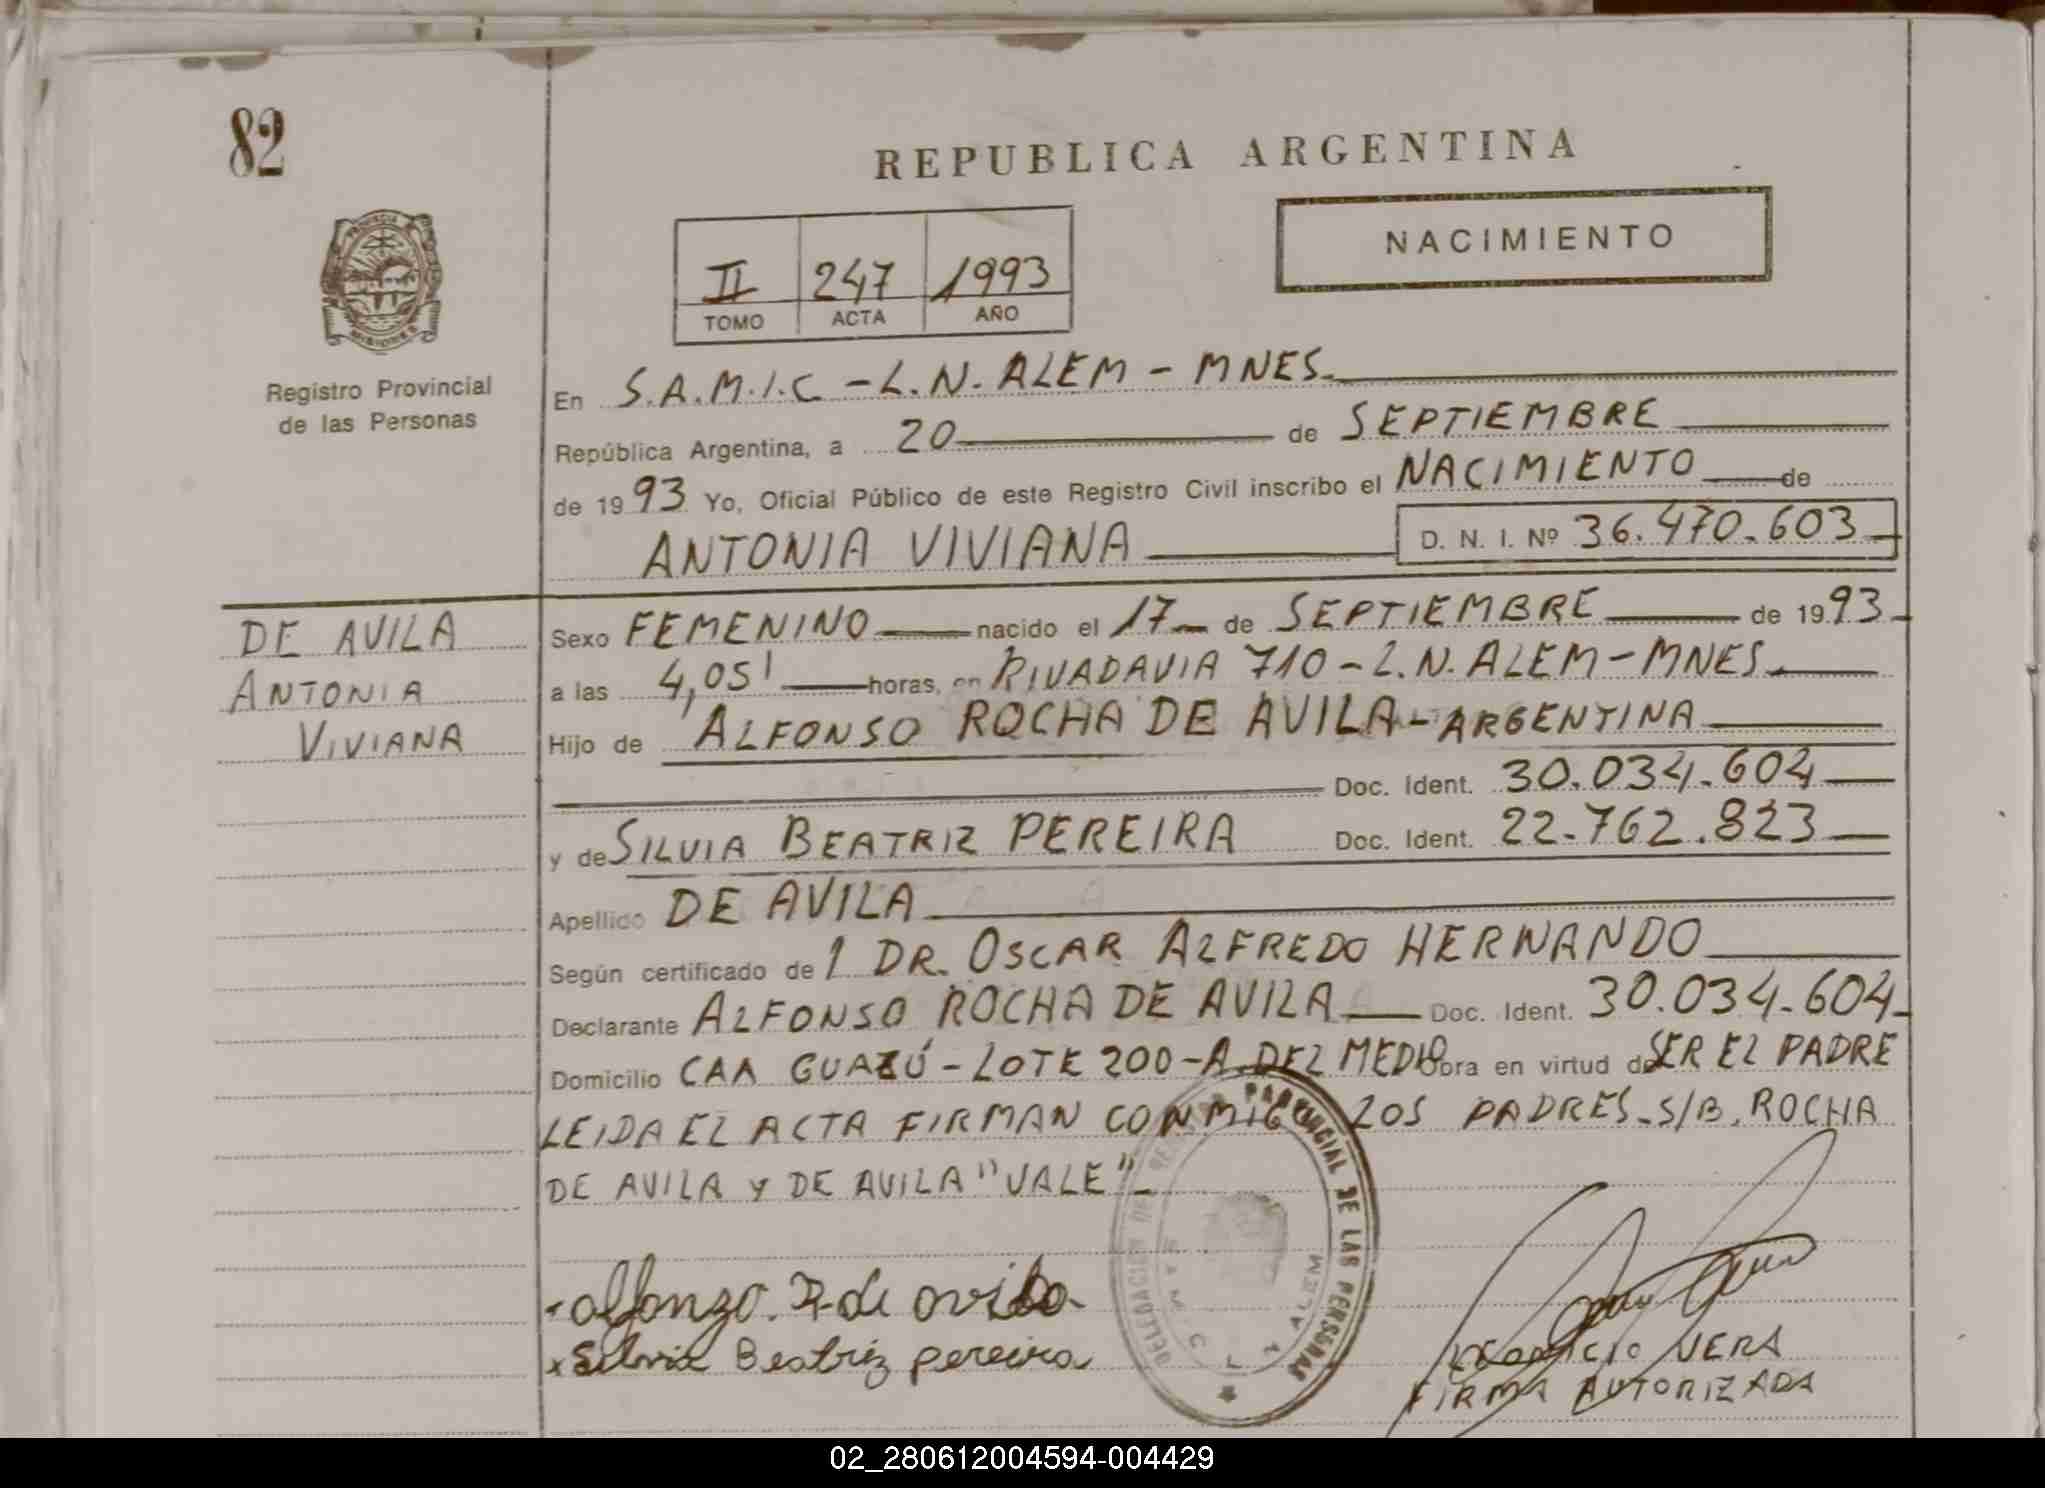 82
REPUBLICA ARGENTINA
NACIMIENTO
II 247 1993
TOMO ACTA AÑO
PROVINCIA
MISIONES
Registro Provincial
de las Personas
En S.A.M.I.C - L.N. ALEM - MNES.
República Argentina, a 20 de SEPTIEMBRE
de 1993 Yo, Oficial Público de este Registro Civil inscribo el NACIMIENTO de
ANTONIA VIVIANA D. N. I. Nº 36.470.603
DE AVILA
ANTONIA
VIVIANA
Sexo FEMENINO nacido el 17 de SEPTIEMBRE de 1993
a las 4,05' horas, en RIVADAVIA 710 - L.N. ALEM - MNES.
Hijo de ALFONSO ROCHA DE AVILA - ARGENTINA
Doc. Ident. 30.034.604
y de SILVIA BEATRIZ PEREIRA Doc. Ident. 22.762.823
Apellido DE AVILA
Según certificado de 1 DR. OSCAR ALFREDO HERNANDO
Declarante ALFONSO ROCHA DE AVILA Doc. Ident. 30.034.604
Domicilio CAA GUAZÚ - LOTE 200 - A. DEL MEDIO obra en virtud de SER EL PADRE
LEIDA EL ACTA FIRMAN CONMIGO LOS PADRES - S/B. ROCHA
DE AVILA Y DE AVILA "VALE"
DELEGACION DE REGISTRO PROVINCIAL DE LAS PERSONAS
S.A.M.I.C. L. N. ALEM
alfonzo. R de avila
x Silvia Beatriz pereira
VERA
FIRMA AUTORIZADA
02_280612004594-004429